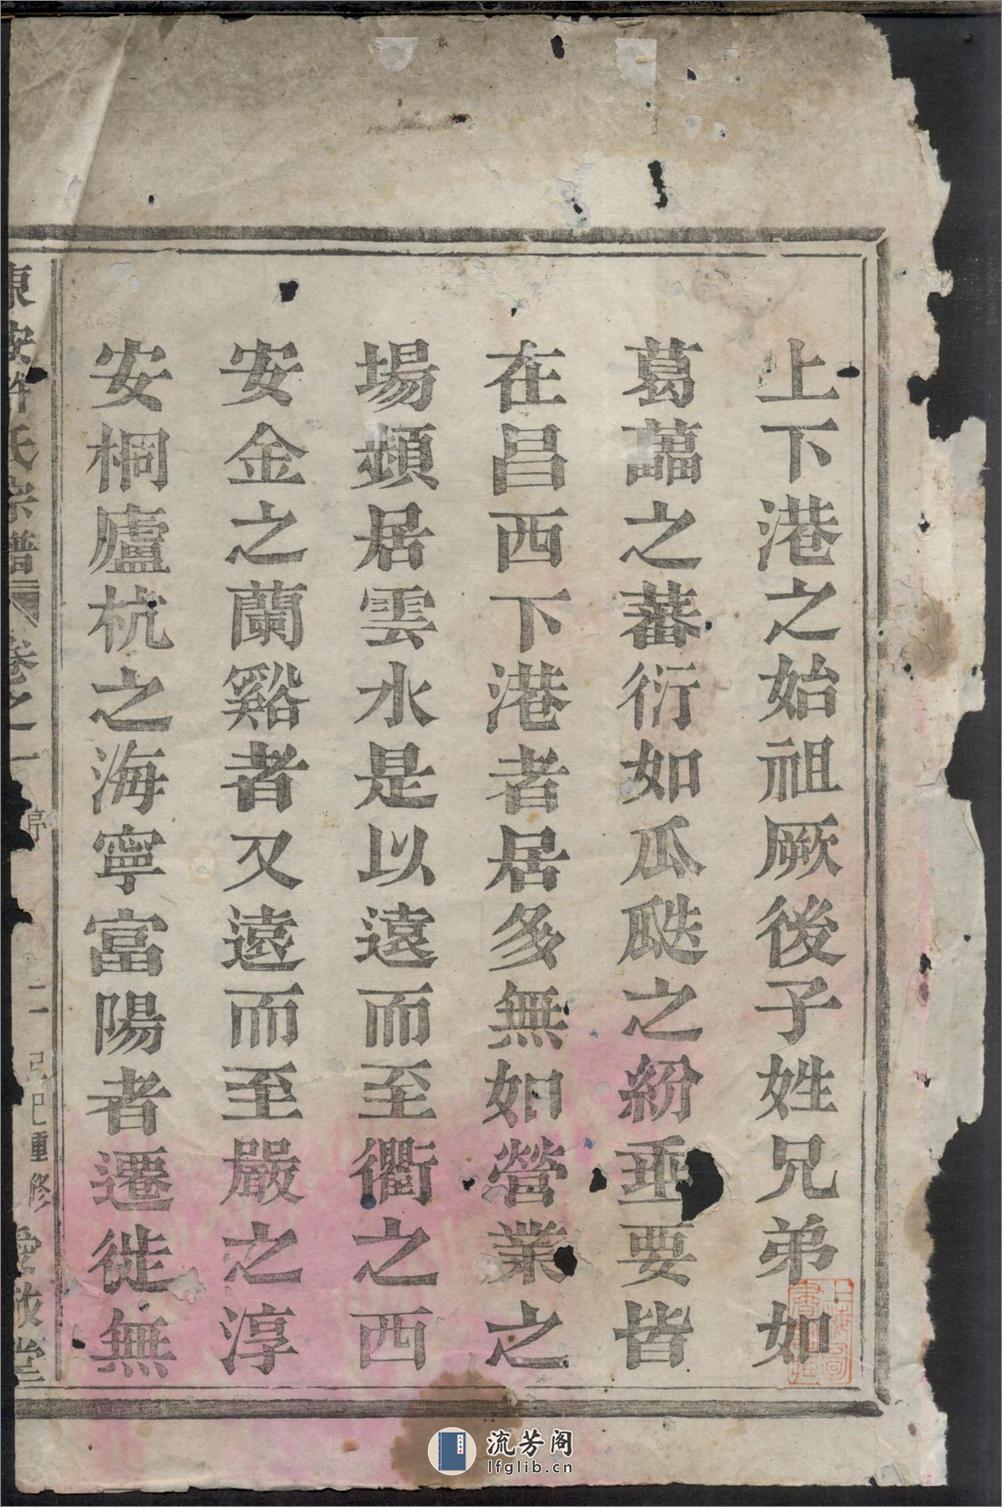 上下港之始祖厥後子姓兄弟如
葛藟之蕃衍如瓜瓞之紛垂要皆
在昌西下港者居多無如營業之
場頻居雲水是以遠而至衢之西
安金之蘭谿者又遠而至嚴之淳
安桐廬杭之海寧富陽者遷徙無
東安許氏宗譜 卷之一 序 二 己巳重修 愛敬堂
流芳阁
lfglib.cn